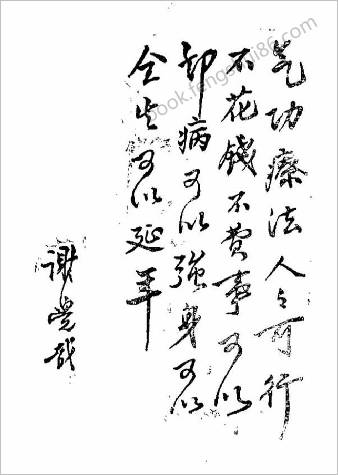 气功療法人々可行
不花錢不費事可以
却病可以強身可以
全生可以延年
謝覺哉
book.fengshui86.com